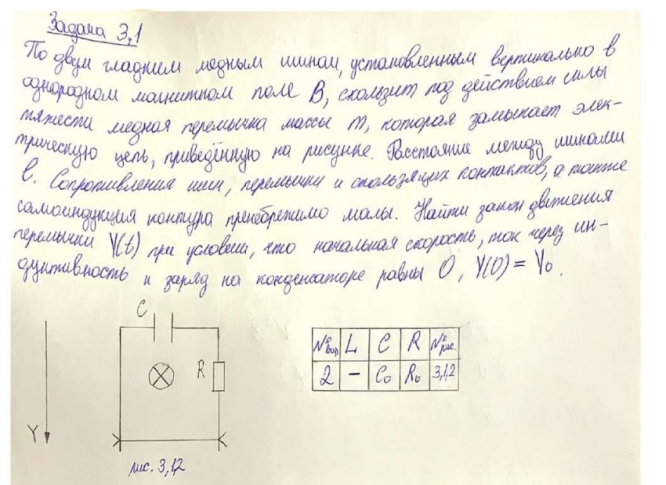 Задача 3,1
По двум гладким медным шинам, установленным вертикально в
однородном магнитном поле B, скользит под действием силы
тяжести медная перемычка массы m, которая замыкает элек-
трическую цепь, приведённую на рисунке. Расстояние между шинами
l. Сопротивления шин, перемычки и скользящих контактов, а также
самоиндукция контура пренебрежимо малы. Найти закон движения
перемычки Y(t) при условии, что начальная скорость, ток через ин-
дуктивность и заряд на конденсаторе равны 0, Y(0) = Y₀.
C
R
Y
рис. 3,1,2
№ вар L C R № рис.
2 – C₀ R₀ 3,1,2